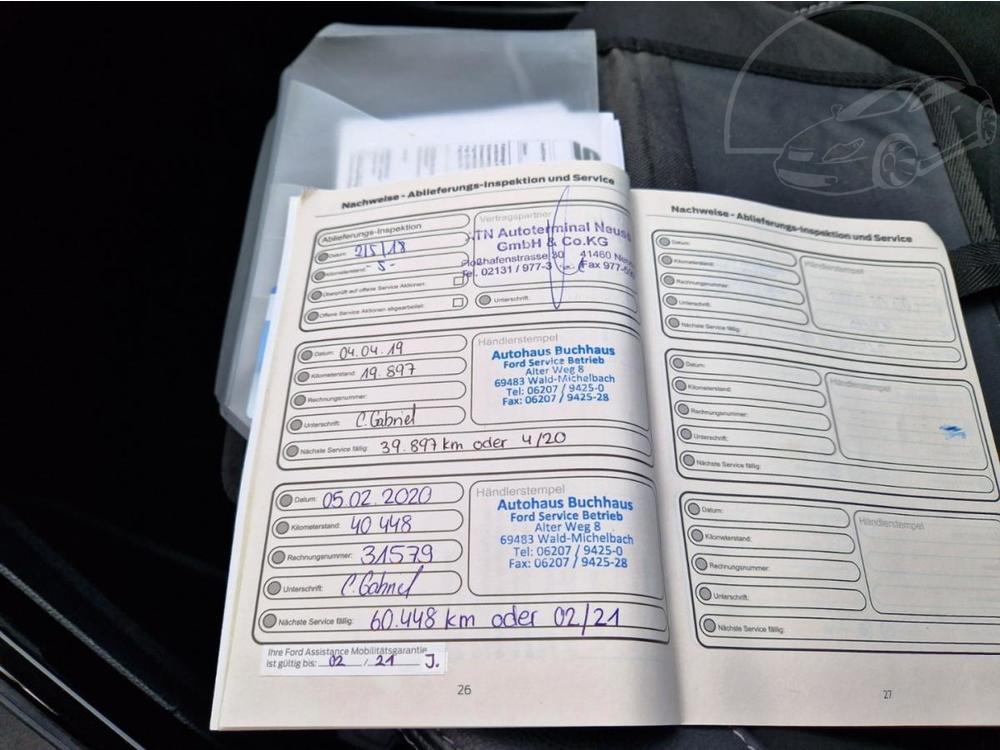 Nachweise - Ablieferungs-Inspektion und Service
Ablieferungs-Inspektion
Datum: 2/5/18
Kilometerstand: - 5 -
Überprüft auf offene Service Aktionen:
Offene Service Aktionen abgearbeitet:
Vertragspartner
Autoterminal Neuss
GmbH & Co.KG
41460
Tel. 02131 / 977-3
Fax 977-
Unterschrift:
Datum: 04.04.19
Kilometerstand: 19.897
Rechnungsnummer:
Unterschrift: C. Gabriel
Nächste Service fällig: 39.897 km oder 4/20
Händlerstempel
Autohaus Buchhaus
Ford Service Betrieb
Alter Weg 8
69483 Wald-Michelbach
Tel: 06207 / 9425-0
Fax: 06207 / 9425-28
Datum: 05.02.2020
Kilometerstand: 40 448
Rechnungsnummer: 31579
Unterschrift: C. Gabriel
Nächste Service fällig: 60.448 km oder 02/21
Händlerstempel
Autohaus Buchhaus
Ford Service Betrieb
Alter Weg 8
69483 Wald-Michelbach
Tel: 06207 / 9425-0
Fax: 06207 / 9425-28
Ihre Ford Assistance Mobilitätsgarantie
ist gültig bis: 02 / 21 J.
26
Nachweise - Ablieferungs-Inspektion und Service
Datum:
Kilometerstand:
Rechnungsnummer:
Unterschrift:
Nächste Service fällig:
Händlerstempel
Datum:
Kilometerstand:
Rechnungsnummer:
Unterschrift:
Nächste Service fällig:
Händlerstempel
Datum:
Kilometerstand:
Rechnungsnummer:
Unterschrift:
Nächste Service fällig:
Händlerstempel
27